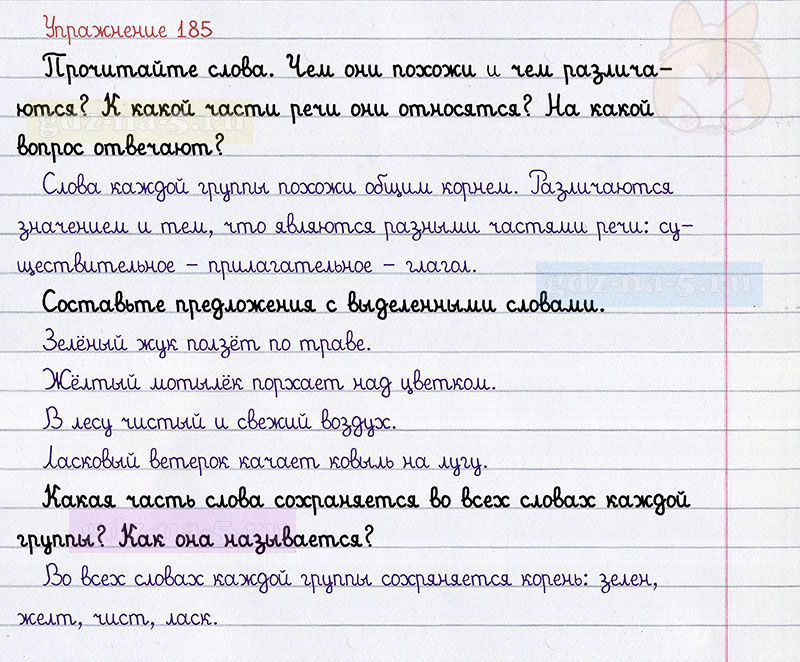 Упражнение 185
Прочитайте слова. Чем они похожи и чем различа-
ются? К какой части речи они относятся? На какой
gdz-na-5.ru
вопрос отвечают?
Слова каждой группы похожи общим корнем. Различаются
значением и тем, что являются разными частями речи: су-
ществительное – прилагательное – глагол.
gdz-na-5.ru
Составьте предложения с выделенными словами.
Зелёный жук ползёт по траве.
Жёлтый мотылёк порхает над цветком.
В лесу чистый и свежий воздух.
Ласковый ветерок качает ковыль на лугу.
Какая часть слова сохраняется во всех словах каждой
группы? Как она называется?
gdz-na-5.ru
Во всех словах каждой группы сохряняется корень: зелен,
желт, чист, ласк.